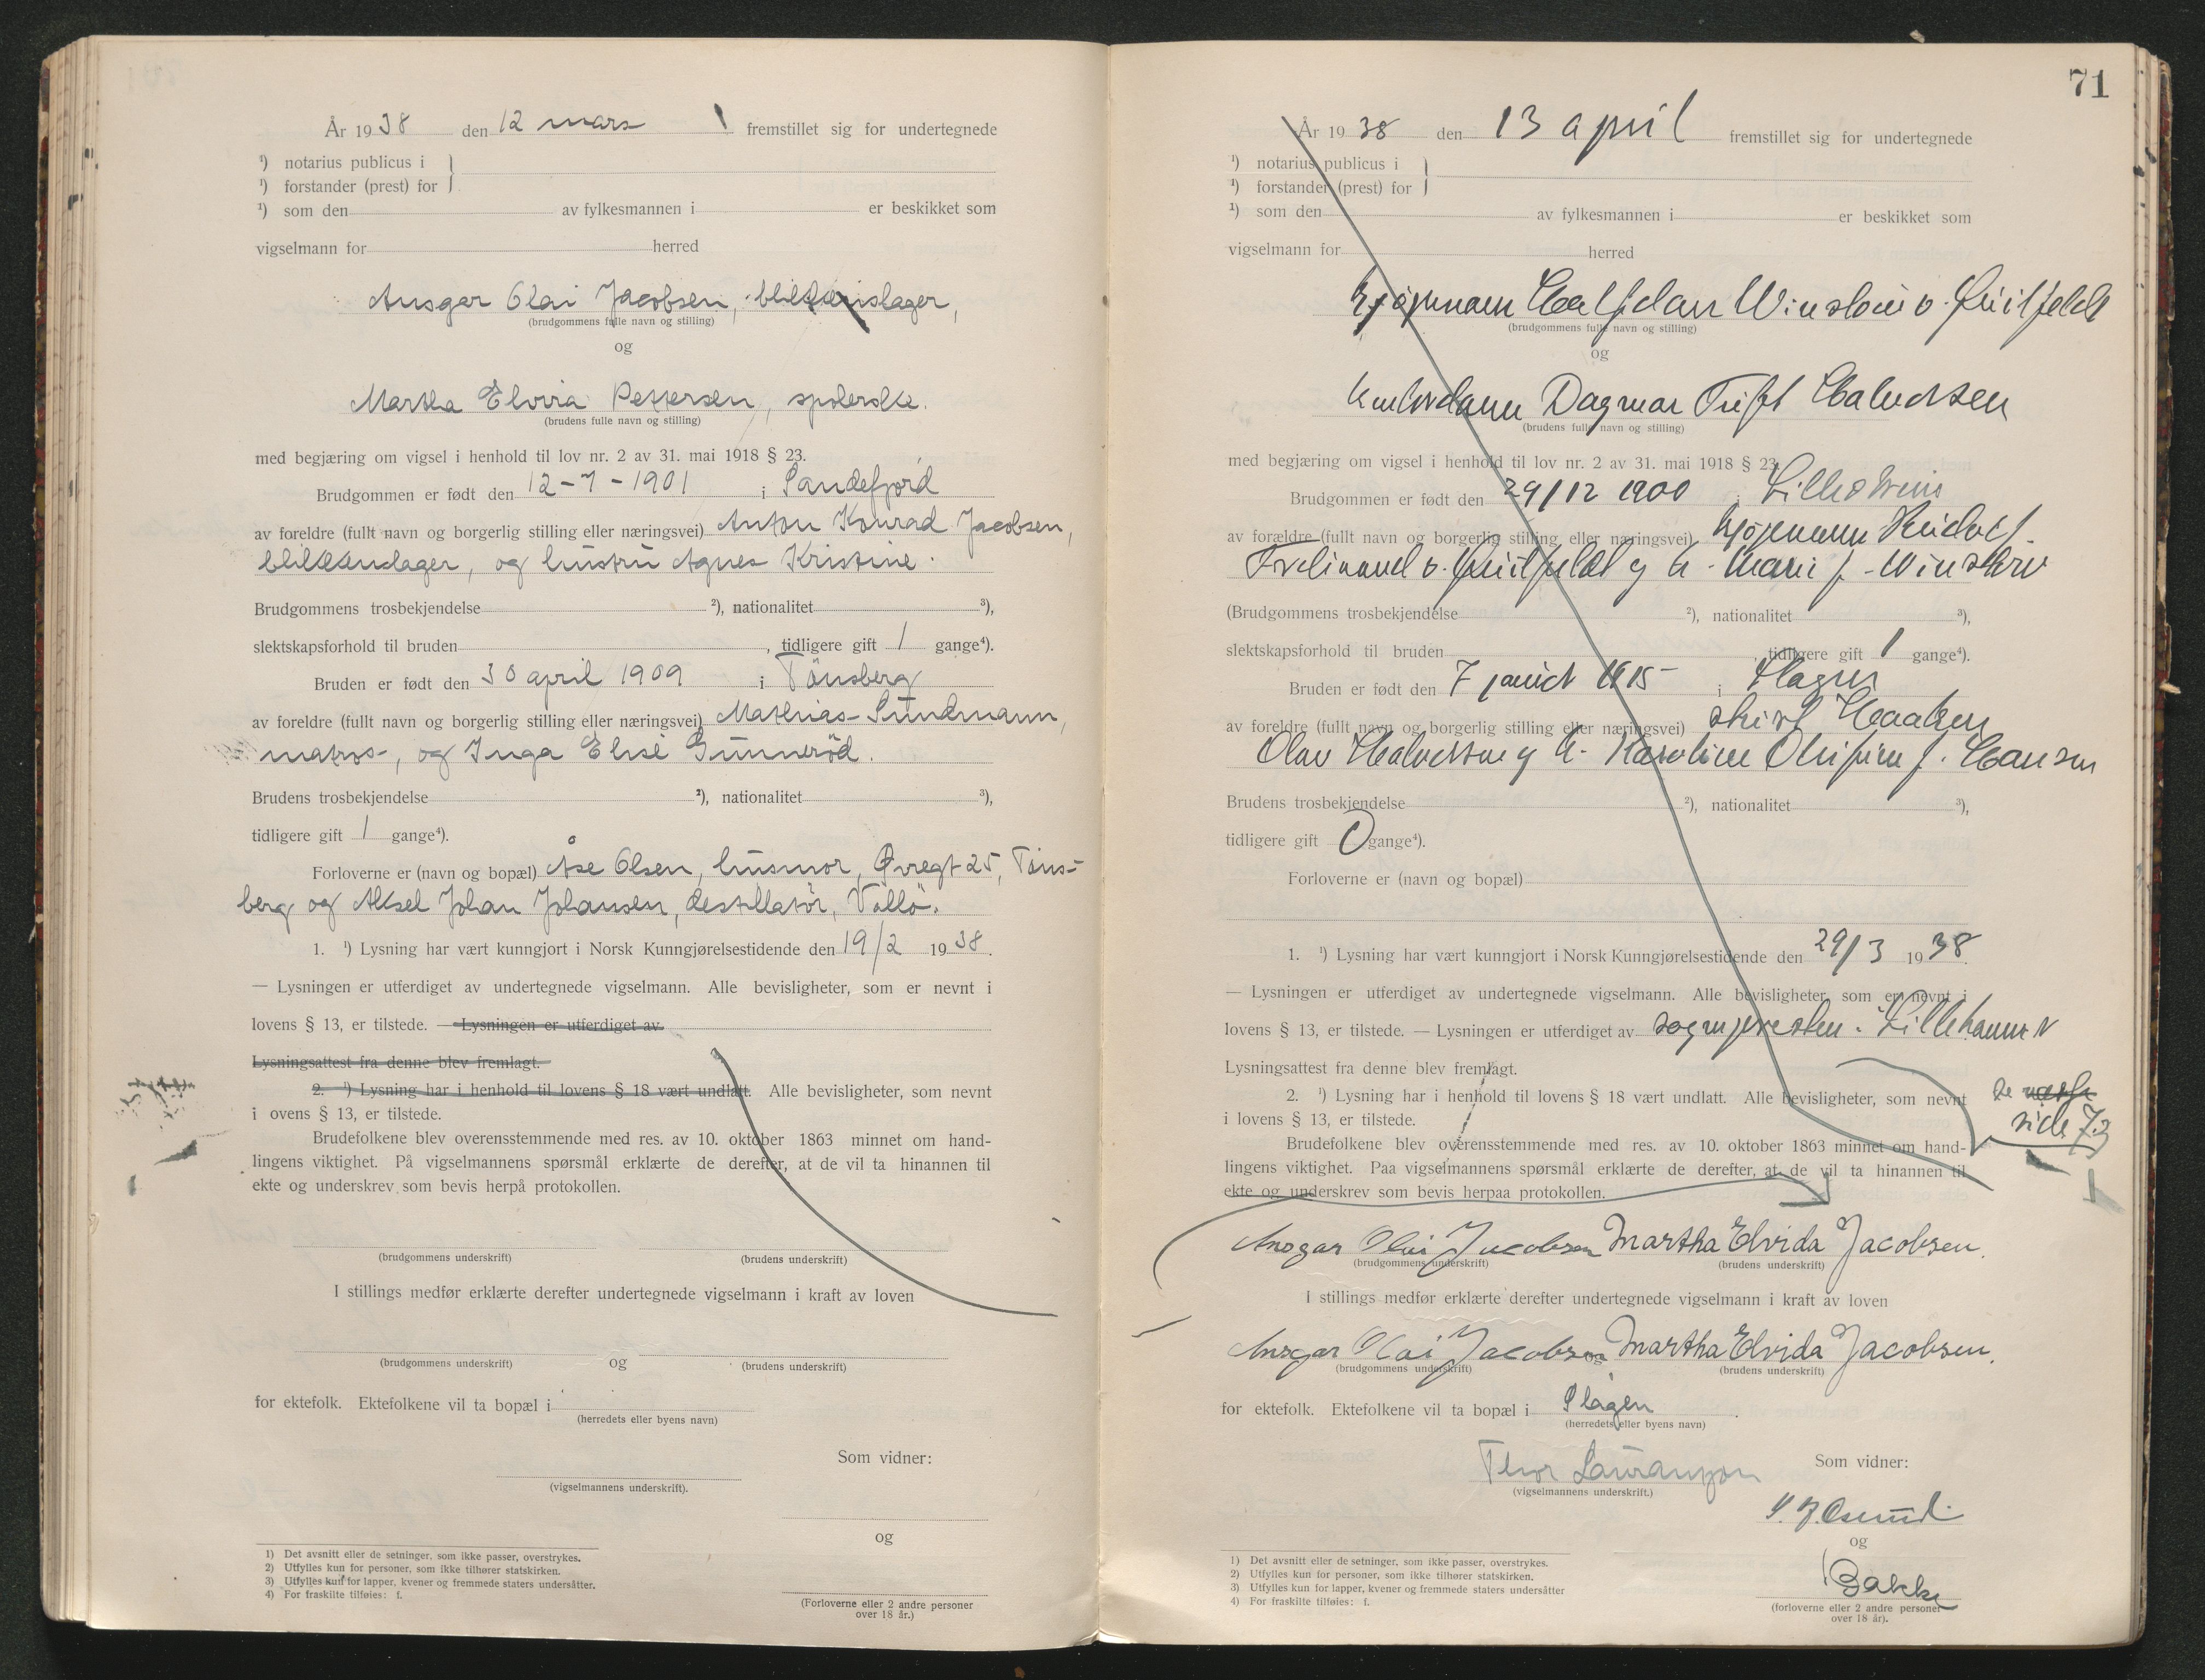 År 1938 den 12 mars fremstillet sig for undertegnede
¹) notarius publicus i
¹) forstander (prest) for
¹) som den av fylkesmannen i er beskikket som
vigselmann for herred
Ansgar Olai Jacobsen, blikkenslager,
(brudgommens fulle navn og stilling)
og
Martha Elvira Pettersen,
(brudens fulle navn og stilling)
med begjæring om vigsel i henhold til lov nr. 2 av 31. mai 1918 § 23.
Brudgommen er født den 12-7-1901 i Sandefjord
av foreldre (fullt navn og borgerlig stilling eller næringsvei) Anton Konrad Jacobsen,
blikkenslager, og hustru Agnes Kristine.
Brudgommens trosbekjendelse ²), nationalitet ³),
slektskapsforhold til bruden , tidligere gift 1 gange⁴).
Bruden er født den 30 april 1909 i Tönsberg
av foreldre (fullt navn og borgerlig stilling eller næringsvei) Mathias Sundmann,
matros, og Inga Elise Gunneröd.
Brudens trosbekjendelse ²), nationalitet ³),
tidligere gift 1 gange⁴).
Forloverne er (navn og bopæl) Åse Olsen, husmor, Øvregt 25, Töns-
berg og Aksel Johan Johansen, destillatör, Vallö.
1. ¹) Lysning har vært kunngjort i Norsk Kunngjørelsestidende den 19/2 1938.
— Lysningen er utferdiget av undertegnede vigselmann. Alle bevisligheter, som er nevnt i
lovens § 13, er tilstede. — Lysningen er utferdiget av
Lysningsattest fra denne blev fremlagt.
2. ¹) Lysning har i henhold til lovens § 18 vært undlatt. Alle bevisligheter, som nevnt
i ovens § 13, er tilstede.
Brudefolkene blev overensstemmende med res. av 10. oktober 1863 minnet om hand-
lingens viktighet. På vigselmannens spørsmål erklærte de derefter, at de vil ta hinannen til
ekte og underskrev som bevis herpå protokollen.
(brudgommens underskrift) (brudens underskrift)
I stillings medfør erklærte derefter undertegnede vigselmann i kraft av loven
og
(brudgommens underskrift) (brudens underskrift)
for ektefolk. Ektefolkene vil ta bopæl i
(herredets eller byens navn)
Som vidner:
(vigselmannens underskrift).
og
(Forloverne eller 2 andre personer
over 18 år.)
1) Det avsnitt eller de setninger, som ikke passer, overstrykes.
2) Utfylles kun for personer, som ikke tilhører statskirken.
3) Utfylles kun for lapper, kvener og fremmede staters undersåtter.
4) For fraskilte tilføies: f.
71
År 1938 den 13 april fremstillet sig for undertegnede
¹) notarius publicus i
¹) forstander (prest) for
¹) som den av fylkesmannen i er beskikket som
vigselmann for herred
Halfdan Winslow v.
(brudgommens fulle navn og stilling)
og
Dagmar Halvorsen
(brudens fulle navn og stilling)
med begjæring om vigsel i henhold til lov nr. 2 av 31. mai 1918 § 23.
Brudgommen er født den 29/12 1900 i
av forældre (fullt navn og borgerlig stilling eller næringsvei)
Ferdinand v.
(Brudgommens trosbekjendelse ²), nationalitet ³),
slektskapsforhold til bruden , tidligere gift 1 gange⁴).
Bruden er født den 7 1915 i
av foreldre (fullt navn og borgerlig stilling eller næringsvei) Haaken
Olav Halvorsen og h. Karoline f. Hansen
Brudens trosbekjendelse ²), nationalitet ³),
tidligere gift 0 gange⁴).
Forloverne er (navn og bopæl)
1. ¹) Lysning har vært kunngjort i Norsk Kunngjørelsestidende den 29/3 1938.
— Lysningen er utferdiget av undertegnede vigselmann. Alle bevisligheter, som er nevnt i
lovens § 13, er tilstede. — Lysningen er utferdiget av sognepresten i Lillehammer
Lysningsattest fra denne blev fremlagt.
2. ¹) Lysning har i henhold til lovens § 18 vært undlatt. Alle bevisligheter, som nevnt
i lovens § 13, er tilstede.
se
side 73
Brudefolkene blev overensstemmende med res. av 10. oktober 1863 minnet om hand-
lingens viktighet. Paa vigselmannens spørsmål erklærte de derefter, at de vil ta hinannen til
ekte og underskrev som bevis herpaa protokollen.
Ansgar Olai Jacobsen Martha Elvida Jacobsen.
(brudgommens underskrift) (brudens underskrift)
I stillings medfør erklærte derefter undertegnede vigselmann i kraft av loven
Ansgar Olai Jacobsen og Martha Elvida Jacobsen.
(brudgommens underskrift) (brudens underskrift)
for ektefolk. Ektefolkene vil ta bopæl i Slagen
(herredets eller byens navn)
Thor Som vidner:
(vigselmannens underskrift.)
og
Bakke
(forloverne eller 2 andre personer
over 18 år).
1) Det avsnitt eller de setninger, som ikke passer, overstrykes.
2) Utfylles kun for personer, som ikke tilhører statskirken.
3) Utfylles kun for lapper, kvener og fremmede staters undersåtter
4) For fraskilte tilføies: f.